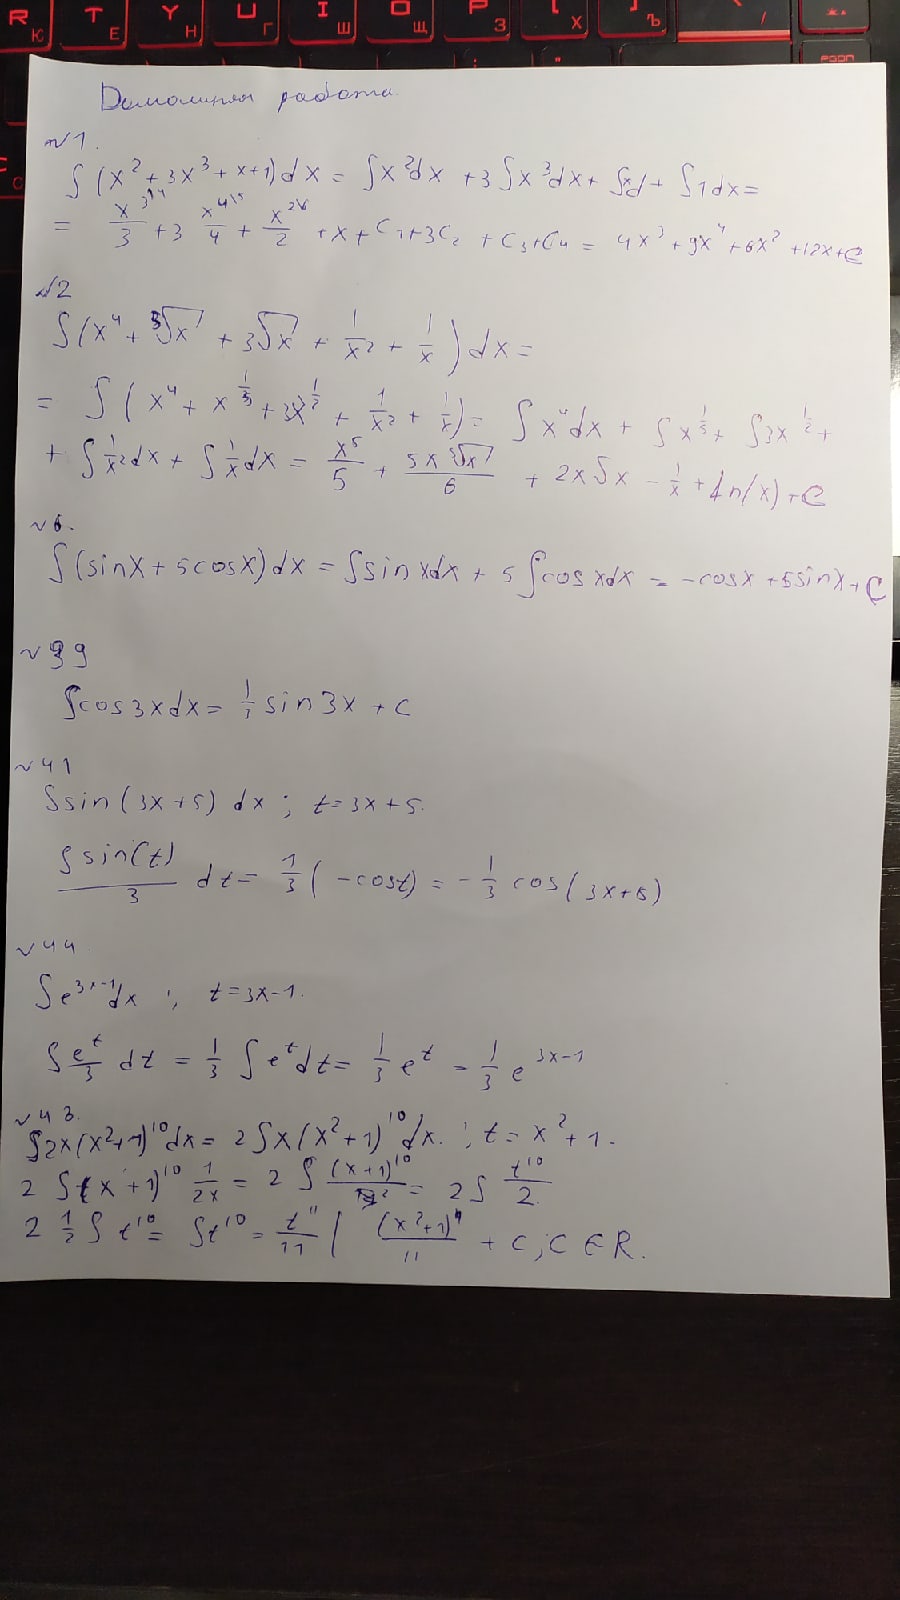 R T Y U I O P [ ]
К Е Н Г Ш Щ З Х Ъ /
Домашняя работа.
№1.
∫(x²+3x³+x+1)dx = ∫x²dx +3∫x³dx+ ∫xd+ ∫1dx=
= x³/3 +3 x⁴/4 + x²/2 +x+C₁+3C₂ +C₃+C₄ = 4x³+9x⁴+6x²+12x+C
№2
∫(x⁴+ ⁵√x + 3√x + 1/x² + 1/x)dx=
= ∫(x⁴+x^(1/5)+3x^(1/2) + 1/x² + 1/x)= ∫x⁴dx + ∫x^(1/5)+ ∫3x^(1/2)+
+ ∫1/x²dx + ∫1/x dx = x⁵/5 + 5x ⁵√x/6 + 2x√x − 1/x + ln(x)+C
№6.
∫(sinx+5cosx)dx = ∫sinxdx + 5∫cosxdx = -cosx +5sinx+C
№39
∫cos3xdx= 1/3 sin3x +C
№41
∫sin(3x+5) dx ; t=3x+5.
∫sin(t)/3 dt= 1/3 (-cost) = -1/3 cos(3x+5)
№44
∫e^(3x-1)dx ; t=3x-1.
∫e^t/3 dt = 1/3 ∫e^t dt= 1/3 e^t = 1/3 e^(3x-1)
№43.
∫2x(x²+1)¹⁰dx= 2∫x(x²+1)¹⁰dx. ; t= x²+1.
2 ∫(x+1)¹⁰ 1/2x = 2∫ (x+1)¹⁰/2 = 2∫ t¹⁰/2
2 1/2 ∫ t¹⁰= ∫t¹⁰ = t¹¹/11 | (x²+1)¹¹/11 + C ; C∈R.